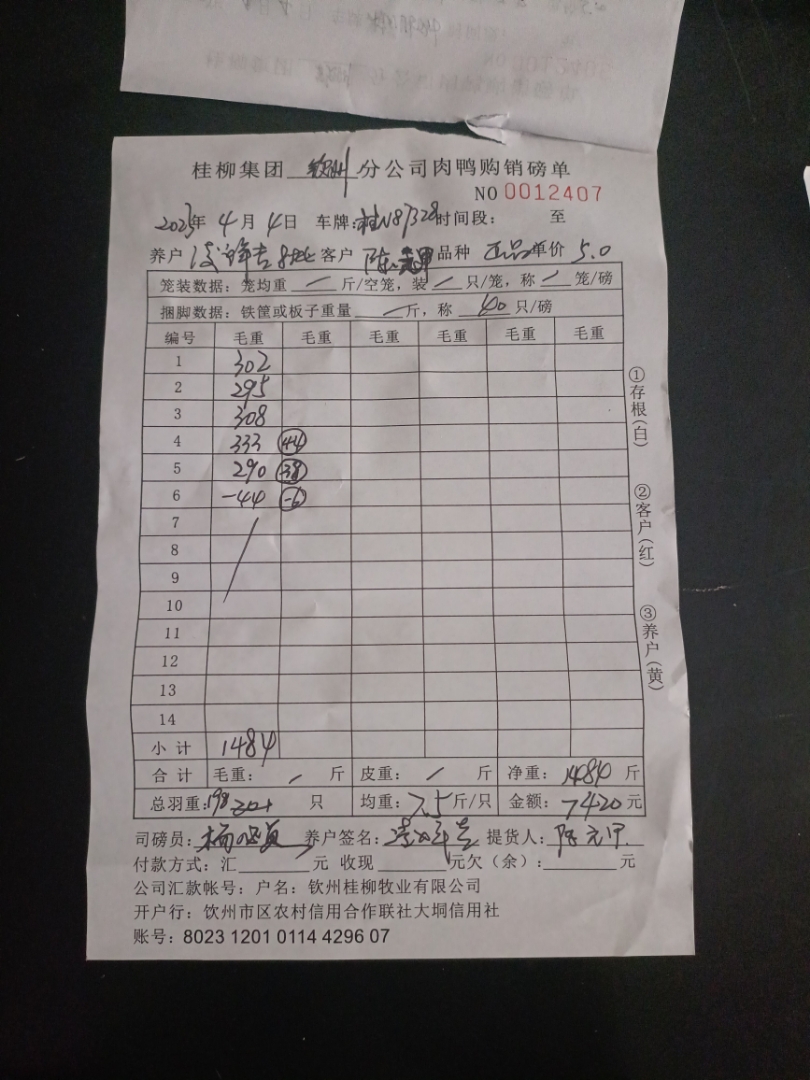 桂柳集团 钦州 分公司肉鸭购销磅单
NO 0012407
2023年 4月 4日 车牌:桂N87328时间段: 至
养户 客户 陈 品种 正品 单价 5.0
笼装数据:笼均重 / 斤/空笼,装 / 只/笼,称 / 笼/磅
捆脚数据:铁筐或板子重量 / 斤,称 40 只/磅
编号 毛重 毛重 毛重 毛重 毛重 毛重
1 302
2 295
3 308
4 333 44
5 290 38
6 -44 -6
7
8
9
10
11
12
13
14
小计 1484
合计 毛重: / 斤 皮重: / 斤 净重: 1484 斤
总羽重:198 只 均重: 7.5 斤/只 金额: 7420 元
司磅员: 养户签名: 提货人: 陈元甲
付款方式:汇 元 收现 元欠(余): 元
公司汇款帐号:户名:钦州桂柳牧业有限公司
开户行:饮州市区农村信用合作联社大垌信用社
账号:8023 1201 0114 4296 07
①存根(白)
②客户(红)
③养户(黄)